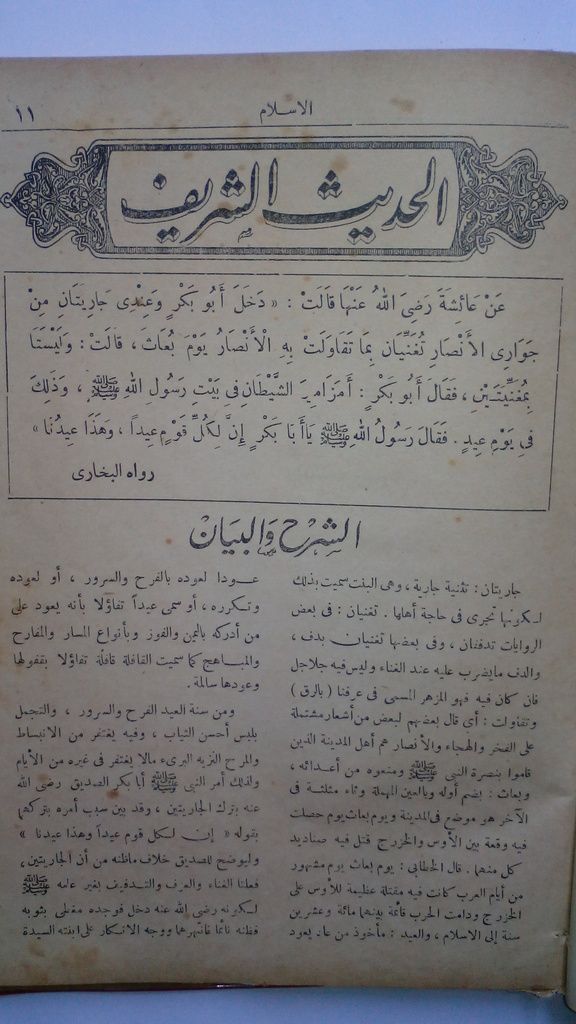 الاسلام
١١
الحديث الشريف
عَنْ عَائِشَةَ رَضِىَ اللهُ عَنْهَا قَالَتْ : « دَخَلَ أَبُو بَكْرٍ وَعِنْدِى جَارِيَتَانِ مِنْ
جَوَارِى الأَنْصَارِ تُغَنِّيَانِ بِمَا تَقَاوَلَتْ بِهِ الْأَنْصَارُ يَوْمَ بُعَاثَ ، قَالَتْ : وَلَيْسَتَا
بِمُغَنِّيَتَيْنِ ، فَقَالَ أَبُو بَكْرٍ : أَمَزَامِيرَ الشَّيْطَانِ فِى بَيْتِ رَسُولِ اللهِ ﷺ ، وَذٰلِكَ
فِى يَوْمِ عِيدٍ . فَقَالَ رَسُولُ اللهِ ﷺ يَاأَبَا بَكْرٍ إِنَّ لِكُلِّ قَوْمٍ عِيداً ، وَهَذَا عِيدُنَا »
رواه البخارى
الشرح والبيان
جاريتان : تثنية جارية ، وهى البنت سميت بذلك
لكونها تجرى فى حاجة أهلها . تغنيان : فى بعض
الروايات تدففان ، وفى بعضها تغنيان بدف ،
والدف مايضرب عليه عند الغناء وليس فيه جلاجل
فان كان فيه فهو المزهر المسمى فى عرفنا ( بالرق )
وتقاولت : أى قال بعضهم لبعض من أشعار مشتملة
على الفخر والهجاء والأنصار هم أهل المدينة الذين
قاموا بنصرة النبى ﷺ ومنعوه من أعدائه ،
وبعاث : بضم أوله وبالعين المهملة وثاء مثلثة فى
الآخر هو موضع فى المدينة ويوم بعاث يوم حصلت
فيه وقعة بين الأوس والخزرج قتل فيه صناديد
كل منهما . قال الخطابى : يوم بعاث يوم مشهور
من أيام العرب كانت فيه مقتلة عظيمة للأوس على
الخزرج ودامت الحرب قائمة بينهما مائة وعشرين
سنة إلى الاسلام ، والعيد : مأخوذ من عاد يعود
عــودا لعوده بالفرح والسرور ، أو لعوده
وتكرره ، أو سمى عيداً تفاؤلا بأنه يعود على
من أدركه باليمن والفوز وبأنواع المسار والمفارح
والمباهج كما سميت القافلة قافلة تفاؤلا بقفولها
وعودها سالمة .
ومن سنة العيد الفرح والسرور ، والتجمل
بلبس أحسن الثياب ، وفيه يغتفر من الانبساط
والمرح النزيه البرىء مالا يغتفر فى غيره من الأيام
ولذلك أمر النبى ﷺ أبا بكر الصديق رضى الله
عنه بترك الجاريتين ، وقد بين سبب أمره بتركهما
بقوله « إن لكل قوم عيداً وهذا عيدنا »
وليوضح للصديق خلاف ماظنه من أن الجاريتين ،
فعلتا الغناء والعزف والتدفيف بغير علمه ﷺ
لكونه رضى الله عنه دخل فوجده مغطى بثوبه
فظنه نائما فانتهرهما ووجه الانكار على ابنته السيدة